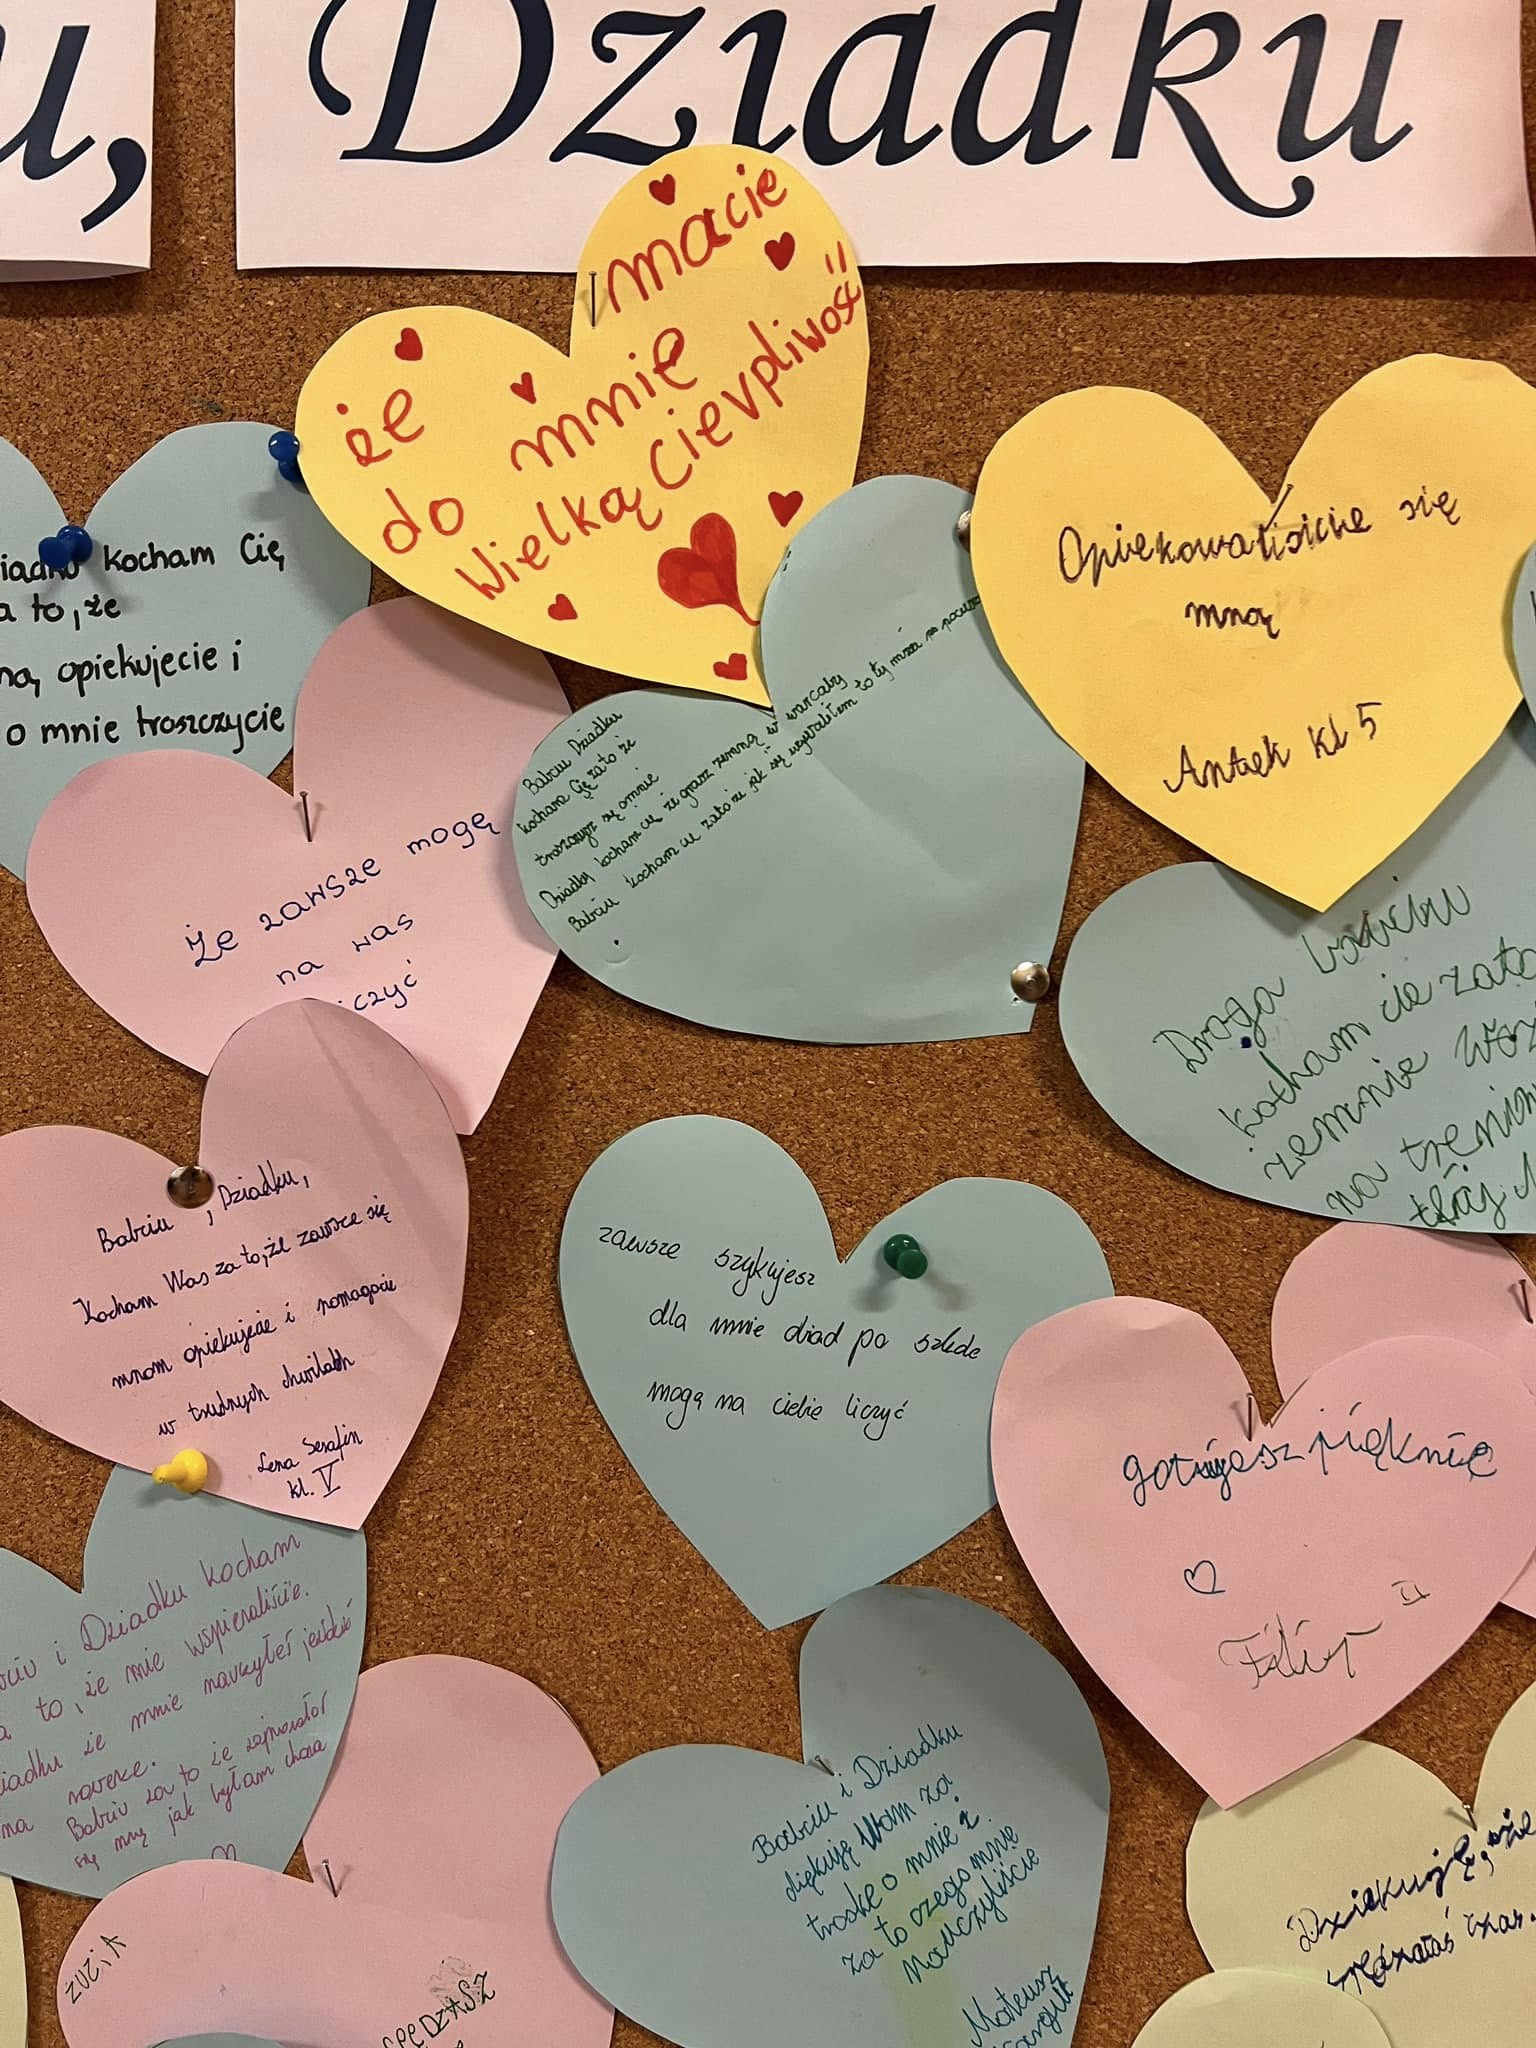 Dziadku
że
macie
do mnie
Wielką Cierpliwość!!
kocham Cię
to, że
opiekujecie i
o mnie troszczycie
Opiekowaliście się
mną
Antek kl 5
Babciu Dziadku
kocham Cię za to że
troszczysz się omnie
Dziadku kocham cię że grasz zemną w warcaby
Babciu kocham cię zato że jak się wywaliłem to ty
Że zawsze mogę
na was
Droga
kocham cie zato
zemnie
na
Babciu, Dziadku,
Kocham Was za to, że zawsze się
mnom opiekujecie i pomagacie
w trudnych chwilach
Lena Serafin
kl. V
zawsze szykujesz
dla mnie obiad po szkole
mogę na ciebie liczyć
gotujesz pięknie
Filip II
i Dziadku kocham
to, że mie wspieraliście.
że mnie nauczyłeś jeździć
na rowerze.
Babciu za to że zajmowałaś
się mną jak byłam chora
Babciu i Dziadku
diękuję Wam za
troske o mnie i
za to czego mnie
Nauczyliście
Mateusz
ZUZIA
Dziękuję, że
czas.